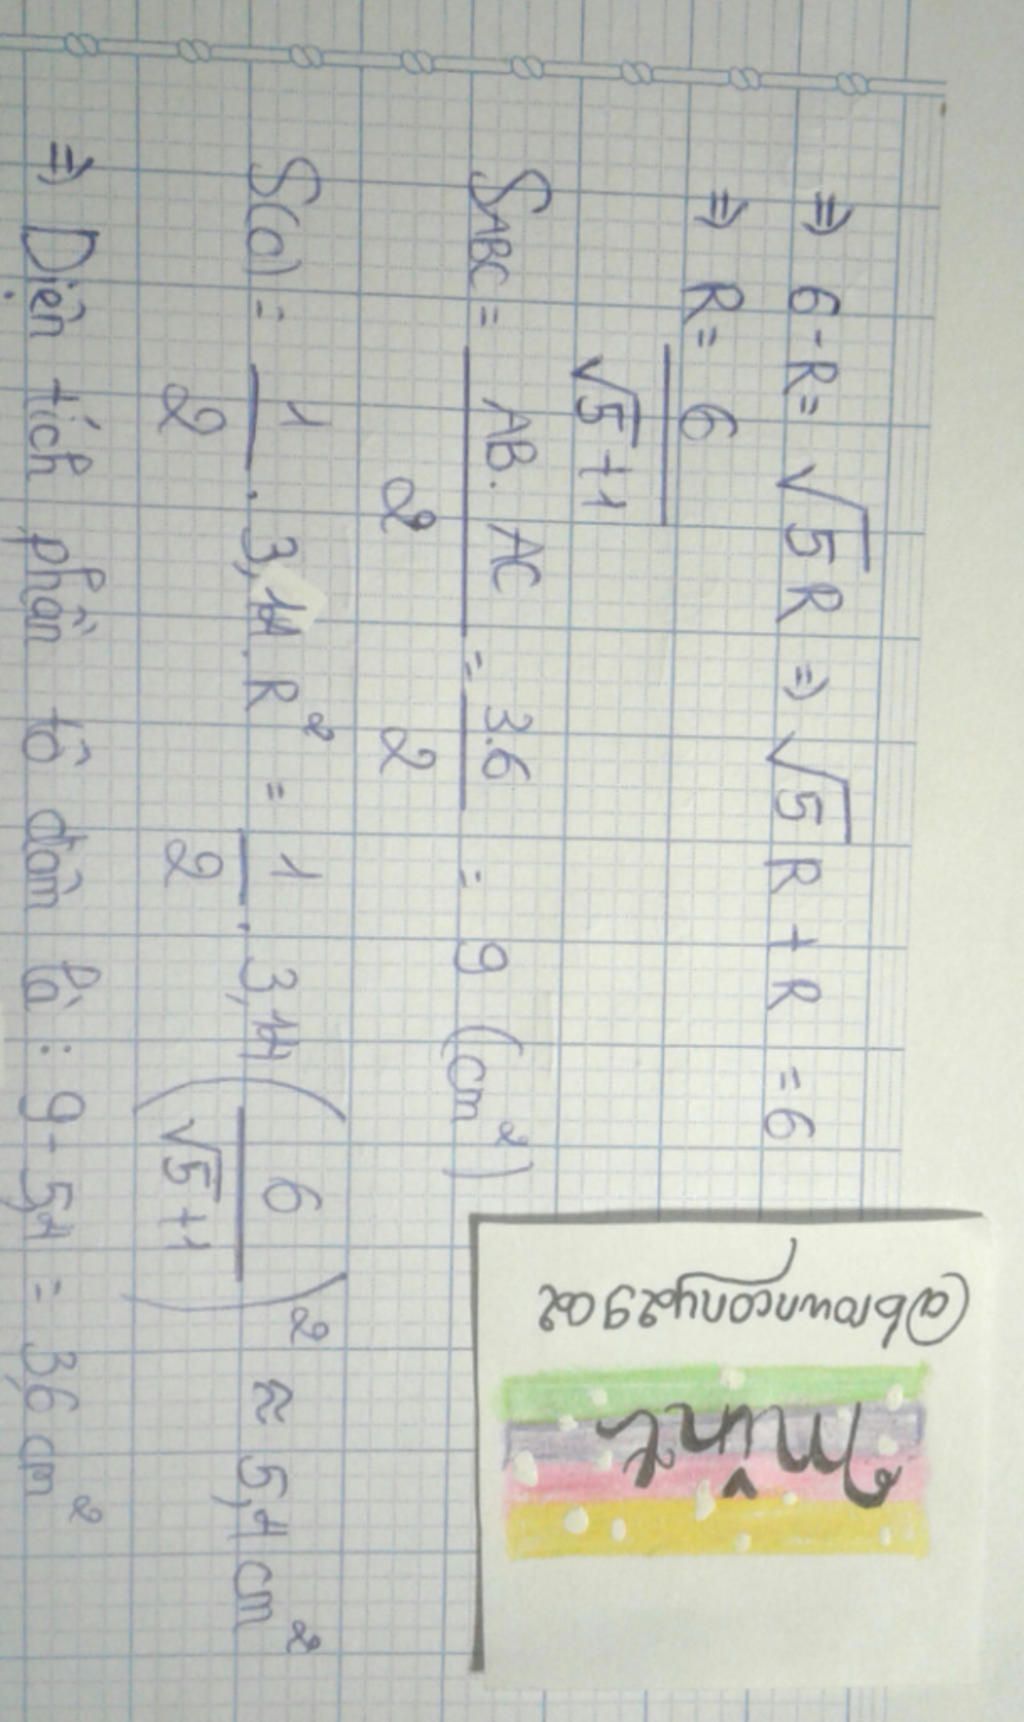 ⇒ 6 - R = √5 R ⇒ √5 R + R = 6
⇒ R = 6 / (√5 + 1)
S_ABC = AB. AC / 2 = 3.6 / 2 = 9 (cm²)
S(O) = 1/2 . 3,14. R² = 1/2 . 3,14 (6 / (√5 + 1))² ≈ 5,4 cm²
⇒ Diện tích phần tô đậm là : 9 - 5,4 = 3,6 cm²
@browncony2902
mint